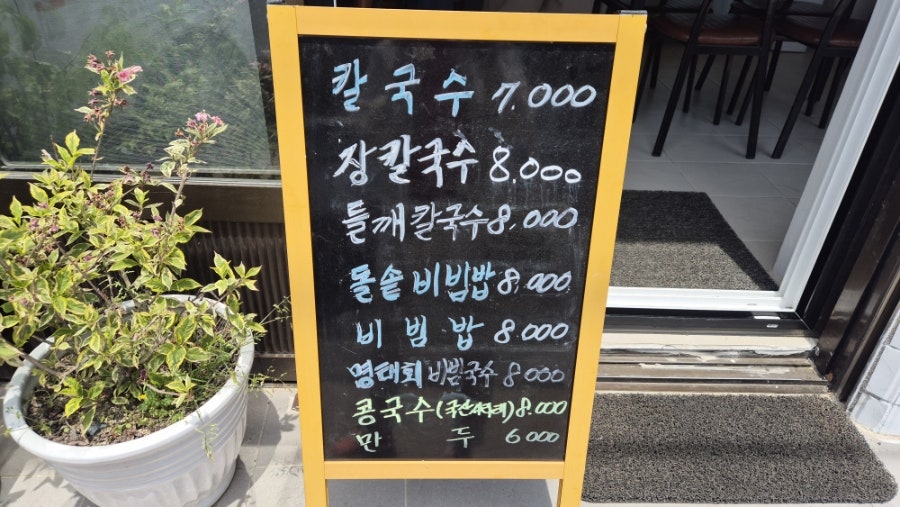 칼국수 7.000
장칼국수 8.000
들깨칼국수 8.000
돌솥비빔밥 8.000
비빔밥 8.000
명태회비빔국수 8000
콩국수(국산서리태) 8.000
만두 6000